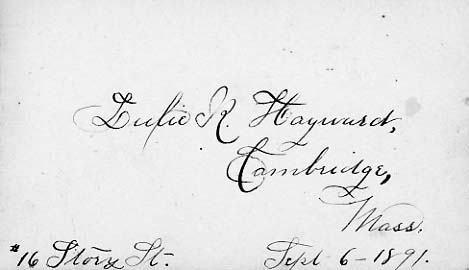 Lufie K. Hayward,
Cambridge,
Mass.
#16 Story St. Sept 6-1891.